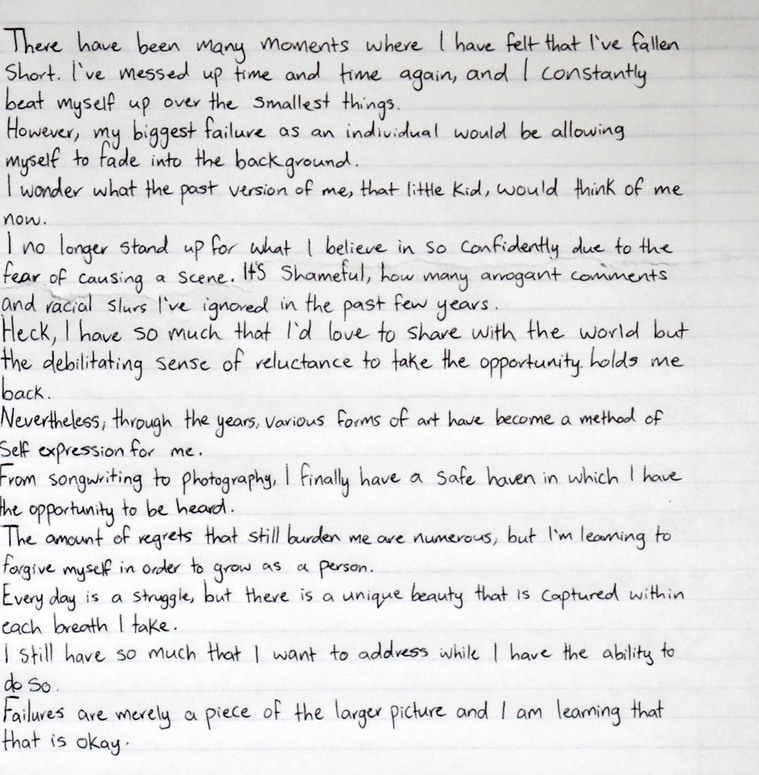 There have been many moments where I have felt that I've fallen
short. I've messed up time and time again, and I constantly
beat myself up over the smallest things.
However, my biggest failure as an individual would be allowing
myself to fade into the background.
I wonder what the past version of me, that little kid, would think of me
now.
I no longer stand up for what I believe in so confidently due to the
fear of causing a scene. It's shameful, how many arrogant comments
and racial slurs I've ignored in the past few years.
Heck, I have so much that I'd love to share with the world but
the debilitating sense of reluctance to take the opportunity holds me
back.
Nevertheless, through the years, various forms of art have become a method of
self expression for me.
From songwriting to photography, I finally have a safe haven in which I have
the opportunity to be heard.
The amount of regrets that still burden me are numerous, but I'm learning to
forgive myself in order to grow as a person.
Every day is a struggle, but there is a unique beauty that is captured within
each breath I take.
I still have so much that I want to address while I have the ability to
do so.
Failures are merely a piece of the larger picture and I am learning that
that is okay.